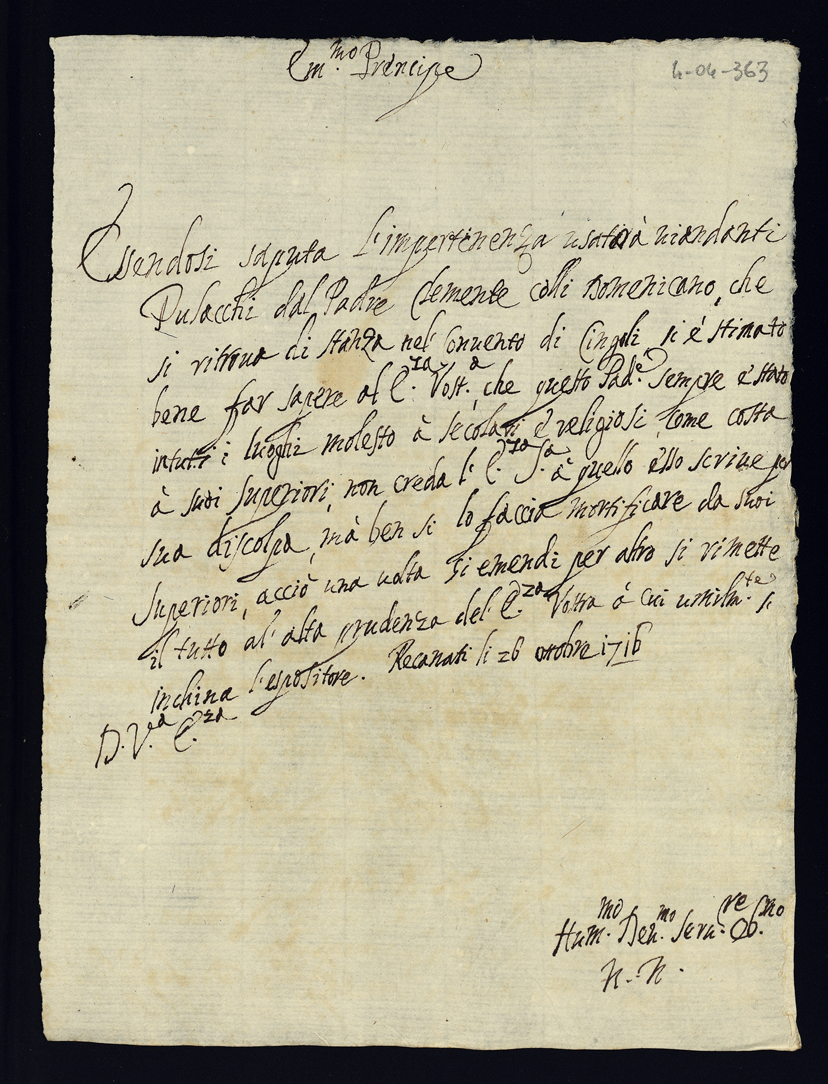 Em.mo Prencipe
4-04-363
Essendosi saputa l'impertinenza usata à viandanti
Pusacchi dal Padre Clemente colli Domenicano, che
si ritroua di stanza nel Conuento di Cingoli, si è stimato
bene far sapere al E.za Vost.a che questo Pad.e sempre è stato
in tutti i luoghi molesto à secolari è religiosi, come costa
à suoi superiori, non creda l' E.za S.a à quello esso scriue per
sua discolpa, mà ben si lo faccia mortificare da suoi
superiori, acciò una uolta si emendi per altro si rimette
il tutto al' alta prudenza del' E.za Vostra à cui umilm.te si
inchina l'espositore. Recanati li 26 ottobre 1716
D. V.a E.za
Hum.mo Deu.mo Seru.re Ob.mo
N. N.